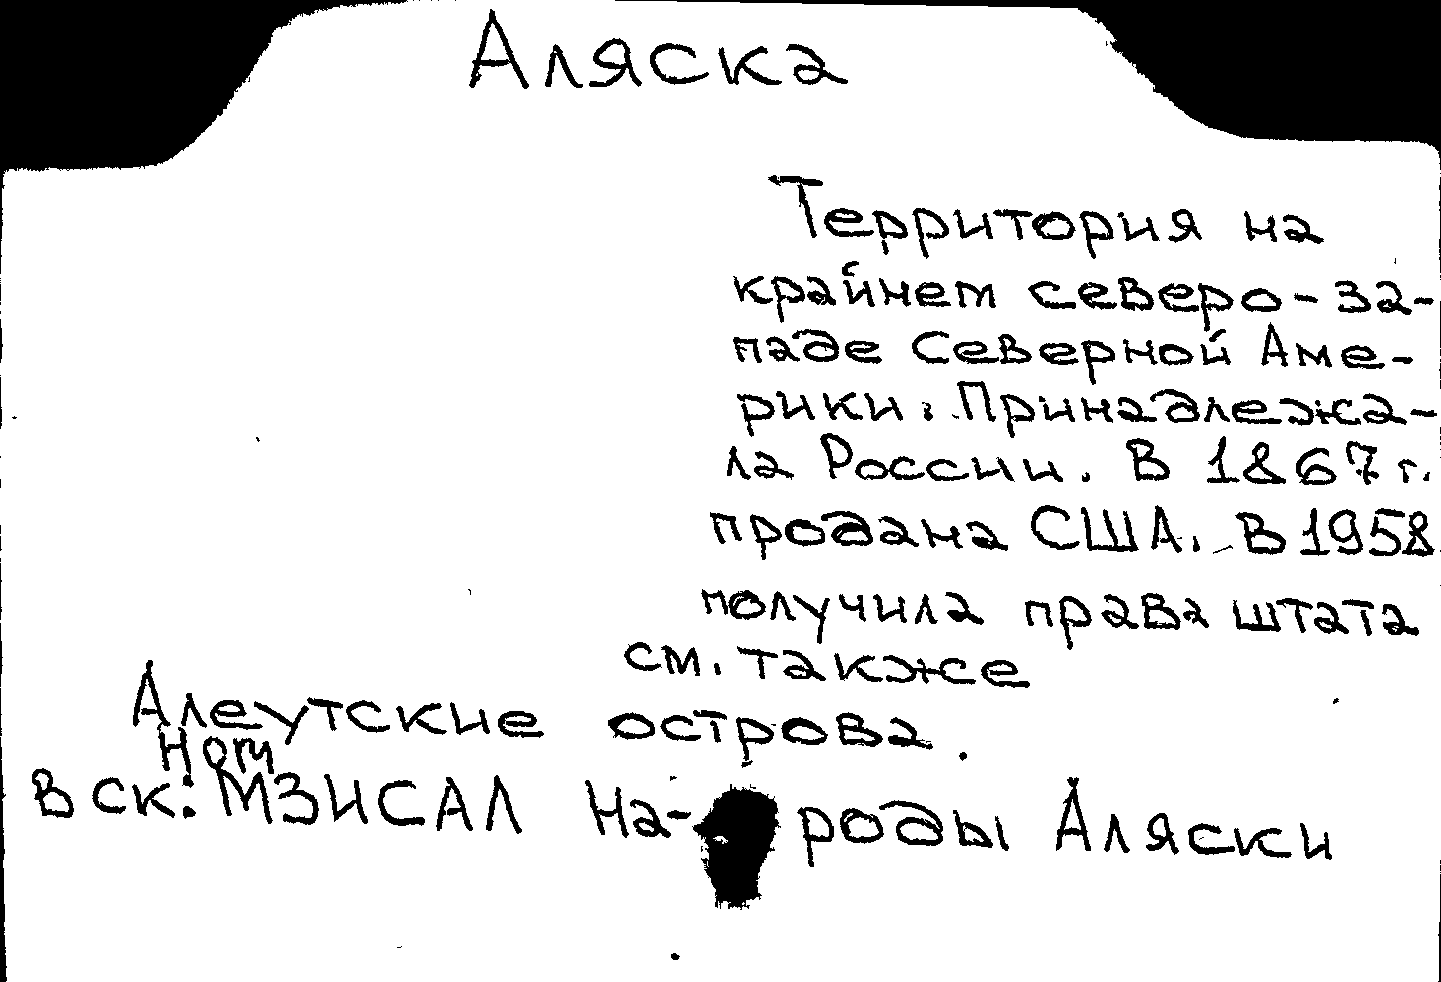 Аляска
Территория на
крайнем северо-за-
паде Северной Аме-
рики. Принадлежа-
ла России. В 1867 г.
продана США. В 1958
получила права штата
см. также
Алеутские острова.
в ск: МЗИСАЛ На- роды Аляски